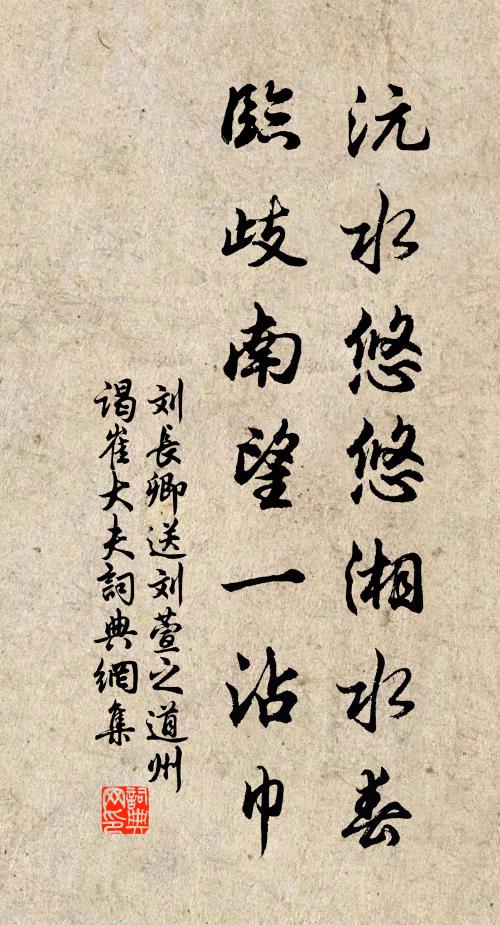 沅水悠悠湘水春
臨歧南望一沾巾
刘長卿送刘萱之道州
謁崔大夫詞典網集
詞典网印